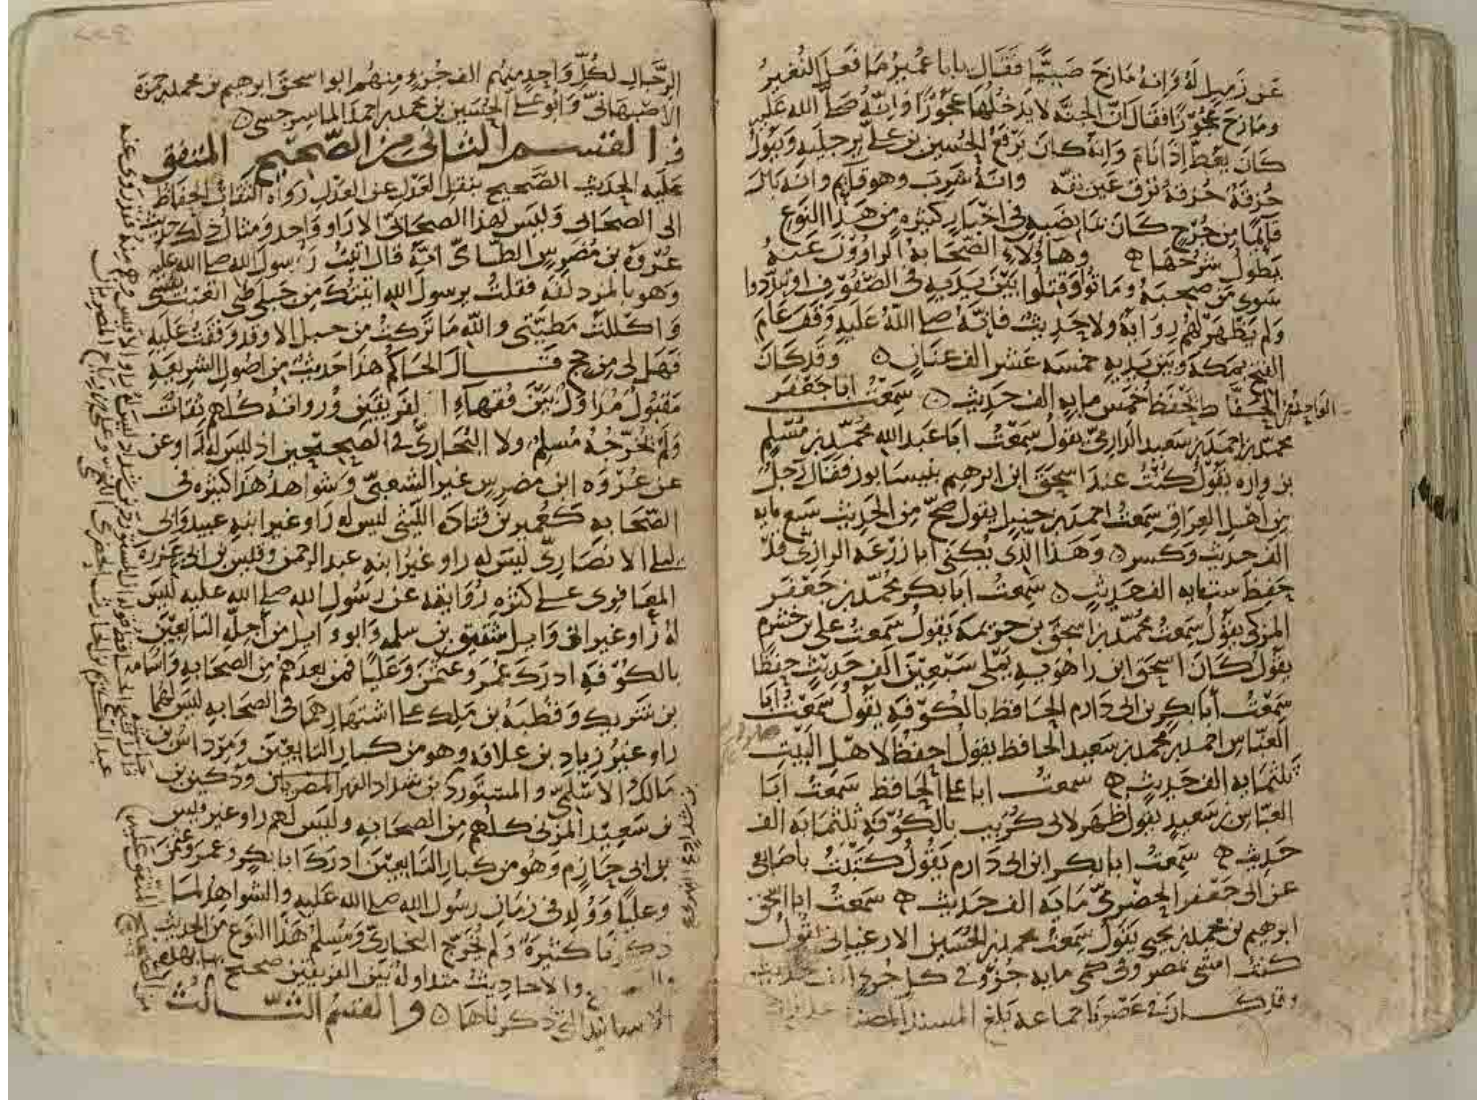 عن زميل له وانه مازح صبيا فقال يابا عمير ما فعل النغير
ومازح عجوزا فقال ان الجنه لا يدخلها عجوز وانه صلى الله عليه
كان يغط اذا نام وانه كان يرفع الحسين بن علي برجليه ويقول
حزقة حزقة ترق عين بقه وانه شرب وهو قايم وانه بال
قايما من جرح كان بمابضه في اخبار كثيره من هذا النوع
يطول شرحها وهاولاء الصحابه الراوون عنه
سوى من صحبه وماتوا وقتلوا بين يديه في الصفوف او بلدوا
ولم يظهر لهم روايه ولا حديث فانه صلى الله عليه وقف عام
الفتح بمكه وبين يديه خمسه عشر الف عنان وقد كان
الواحد من الحفاظ يحفظ خمس مايه الف حديث سمعت ابا جعفر
محمد بن احمد بن سعيد الرازي يقول سمعت ابا عبد الله محمد بن مسلم
بن واره يقول كنت عند اسحق ابن ابرهيم بنيسابور فقال رجل
من اهل العراق سمعت احمد بن حنبل يقول صح من الحديث سبع مايه
الف حديث وكسر وهذا الذي يكنى ابا زرعه الرازي قد
حفظ ستمايه الف حديث سمعت ابا بكر محمد بن جعفر
المزكي يقول سمعت محمد بن اسحق بن خزيمه يقول سمعت علي بن خشرم
يقول كان اسحق ابن راهويه يملي سبعين الف حديث حفظا
سمعت ابا بكر بن ابي دارم الحافظ بالكوفه يقول سمعت ابا
العباس احمد بن محمد بن سعيد الحافظ يقول احفظ لاهل البيت
ثلثمايه الف حديث سمعت ابا علي الحافظ سمعت ابا
العباس بن سعيد يقول ظهر لابي كريب بالكوفه ثلثمايه الف
حديث سمعت ابا بكر ابن ابي دارم يقول كتبت باصابعي
عن ابي جعفر الحضرمي مايه الف حديث سمعت ابا اسحق
ابرهيم بن محمد بن يحيى يقول سمعت محمد بن الحسين الارغياني يقول
كنت امشي بمصر وفي كمي مايه جزو في كل جزو الف حديث
وقد كان في عصرنا جماعه بلغ المسند المصنف على تراجم
الرجال لكل واحد منهم الف جزو منهم ابو اسحق ابرهيم بن محمد بن حمزه
الاصبهاني وابو علي الحسين بن محمد بن احمد الماسرجسي
والقسم الثاني من الصحيح المتفق
عليه الحديث الصحيح بنقل العدل عن العدل رواه الثقات الحفاظ
الى الصحابي وليس لهذا الصحابي الا راو واحد ومثال ذلك حديث
عروه بن مضرس الطائي انه قال اتيت رسول الله صلى الله عليه
وهو بالمزدلفه فقلت يرسول الله اتيتك من جبلي طي اتعبت نفسي
واكللت مطيتي والله ما تركت من جبل الا وقد وقفت عليه
فهل لي من حج قال الحاكم هذا حديث من اصول الشريعه
مقبول متداول بين فقهاء الفريقين ورواته كلهم ثقات
ولم يخرجه مسلم ولا البخاري في الصحيحين اذ ليس له راو عن
عن عروه ابن مضرس غير الشعبي وشواهد هذا كثيره في
الصحابه كعمير بن قتاده الليثي ليس له راو غير ابنه عبيد وابي
ليلى الانصاري ليس له راو غير ابنه عبد الرحمن وقيس بن ابي غرزه
الغفاري على كثره رواياته عن رسول الله صلى الله عليه ليس
له راو غير ابي وايل شقيق بن سلمه وابو وايل من اجله التابعين
بالكوفه ادرك عمر وعثمن وعليا فمن بعدهم من الصحابه واسامه
بن شريك وقطبه بن ملك على اشتهارهما في الصحابه ليس لهما
راو غير زياد بن علاقه وهو من كبار التابعين ومرداس بن
مالك الاسلمي والمستورد بن شداد الفهري المصريان ودكين بن
بن سعيد المزني كلهم من الصحابه وليس لهم راو غير قيس
بن ابي حازم وهو من كبار التابعين ادرك ابا بكر وعمر وعثمن
وعليا وولد في زمان رسول الله صلى الله عليه والشواهد لما
ذكرنا كثيرة ولم يخرج البخاري ومسلم هذا النوع من الحديث
والاحاديث متداولة بين الفريقين صحيح بها بهذه
الاسانيد التي ذكرناها والقسم الثالث